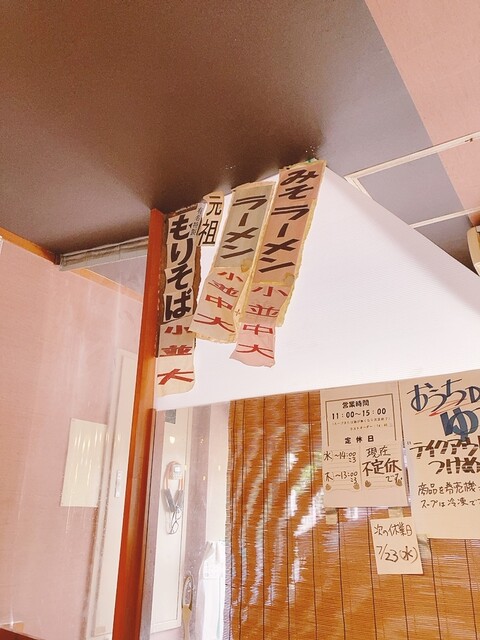 みそラーメン
小並中大
ラーメン
小並中大
元祖
もりそば
小並大
営業時間
11:00〜15:00
定休日
水〜14:00
木〜13:00
現在
不定休
です
おうち
ゆ
テイクアウ
つけめ
商品を券売機
スープは冷凍で
次の休業日
7/23(水)